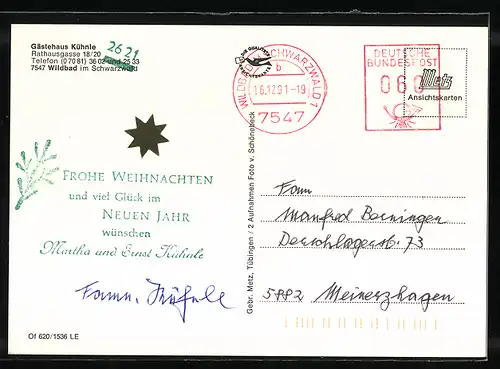 Gästehaus Kühnle
Rathausgasse 18/20 2621
Telefon (07081) 3602 und 2533
7547 Wildbad im Schwarzwald
FROHE WEIHNACHTEN
und viel Glück im
NEUEN JAHR
wünschen
Martha und Ernst Kühnle
Fam. Kühnle
Of 620/1536 LE
Gebr. Metz, Tübingen / 2 Aufnahmen Foto v. Schönebeck
WILDBAD SCHWARZWALD 1
b
16.12.91-19
7547
DEUTSCHE
BUNDESPOST
060
Metz
Ansichtskarten
Fam
Manfred
73
5882 Meinerzhagen